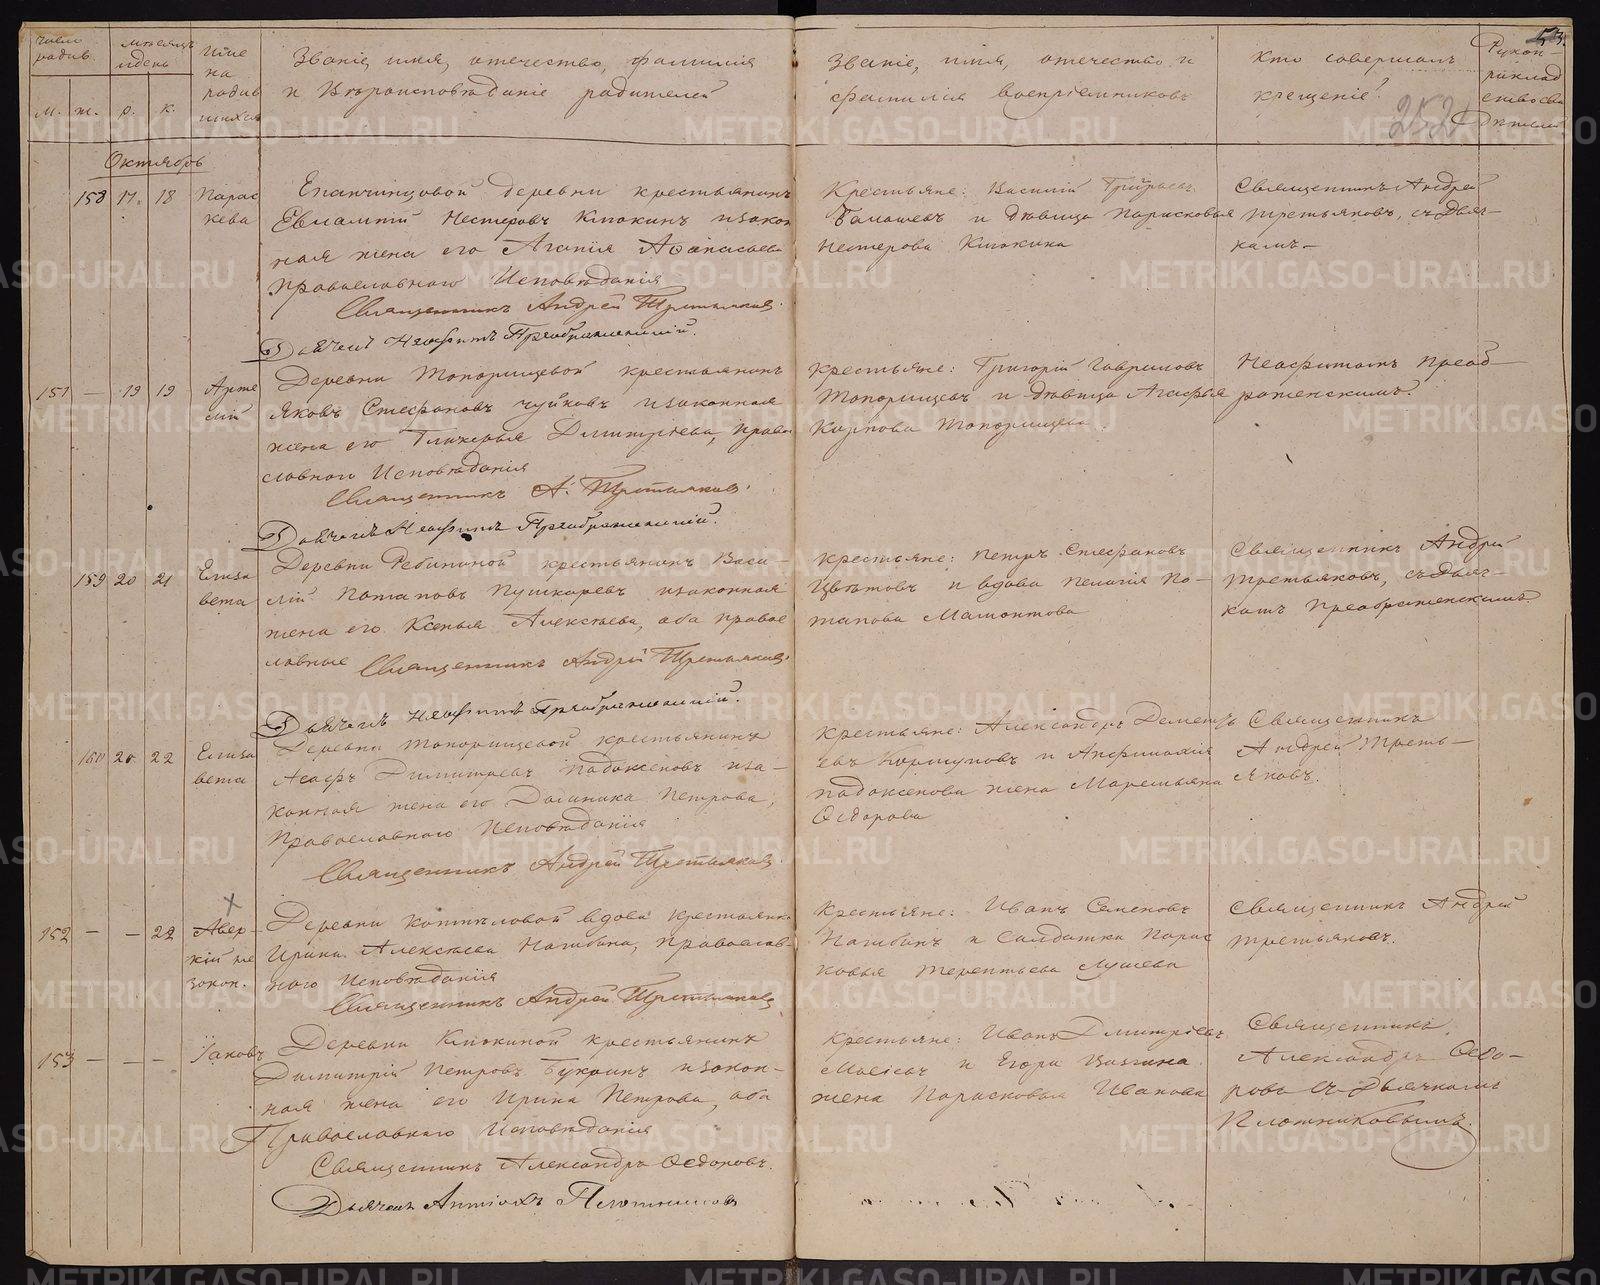 число родив.
мѣсяцъ и день
Име на родив шихся
Званіе, имя, отечество, фамилія
и Вѣроисповѣданіе родителей
Званіе, имя, отечество и
фамилія воспріемниковъ
Кто совершалъ
крещеніе?
Рукоп-
риклад
ство сви
дѣтелей
53.
252
м. ж. р. к.
Октябрь
158 17. 18 Парас
кева
Епанчинцовой деревни крестьянинъ
Евлампій Нестеровъ Клюкинъ и закон
ная жена его Агапія Афанасьева
Православнаго Исповѣданія
Священникъ Андрей Третьяковъ.
Дьячекъ Неофитъ Преображенскій.
Крестьяне: Василій Григорьевъ
и дѣвица Парасковья
Нестерова Клюкина
Священникъ Андрей
Третьяковъ, съ Дьяч-
камъ
151 — 19 19 Арте
мій
Деревни Топорищевой крестьянинъ
Яковъ Стефановъ Чуйковъ и законная
жена его Гликерья Димитріева, Право
славнаго Исповѣданія
Священникъ А. Третьяковъ.
Дьячекъ Неофитъ Преображенскій.
Крестьяне: Григорій Гавриловъ
Топорищевъ и дѣвица Агафья
Карпова Топорищева.
Неофитомъ Преоб-
раженскимъ.
159 20 21 Елиза
вета
Деревни Рѣпиной крестьянинъ Васи-
лій Потаповъ Пушкаревъ и законная
жена его Ксенья Алексѣева, оба правос
лавные Священникъ Андрей Третьяковъ.
Дьячекъ Неофитъ Преображенскій.
Крестьяне: Петръ Стефановъ
Цвѣтовъ и вдова Пелагія По-
тапова Мамонтова
Священникъ Андрей
Третьяковъ, съ Дьяч-
камъ Преображенскимъ
160 20 22 Елиза
вета
Деревни Топорищевой крестьянинъ
Асафъ Димитріевъ Падоксеновъ и за-
конная жена его Домника Петрова,
Православнаго Исповѣданія
Священникъ Андрей Третьяковъ.
Крестьяне: Александръ Демент
евъ Коршуновъ и
Падоксенова жена Маремьяна
Ѳедорова
Священникъ
Андрей Треть-
яковъ.
152 — — 22 Авер-
кій не
закон.
Деревни Коптѣловой вдова Крестьянка
Ирина Алексѣева Нагибина, Православ
наго Исповѣданія
Священникъ Андрей Третьяковъ
Крестьяне: Иванъ Семеновъ
Нагибинъ и Солдатка Парас
ковья Терентьева
Священникъ Андрей
Третьяковъ.
153 — — — Іаковъ
Деревни Клюкиной крестьянинъ
Димитрій Петровъ Букринъ и закон-
ная жена его Ирина Петрова, оба
Православнаго Исповѣданія
Священникъ Александръ Ѳедоровъ.
Дьячекъ Антіохъ Плотниковъ
Крестьяне: Иванъ Дмитріевъ
и Егора
жена Парасковья Иванова
Священникъ
Александръ Ѳедо-
ровъ съ Дьячкомъ
Плотниковымъ.
METRIKI.GASO-URAL.RU